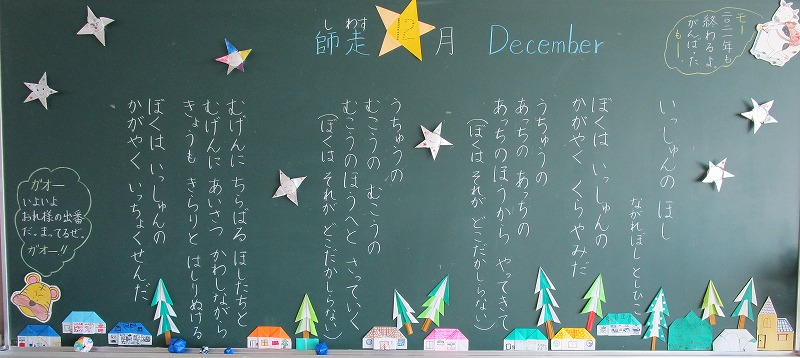 しわす
師走 12月 December
モー
二〇二一年も
終わるよ。
がんばった
もー!
いっしゅんの ほし
ながれぼし としひこ
ぼくは いっしゅんの
かがやく くらやみだ
うちゅうの
あっちの あっちの
あっちのほうから やってきて
(ぼくは それが どこだかしらない)
うちゅうの
むこうの むこうの
むこうのほうへと さっていく
(ぼくは それが どこだかしらない)
むげんに ちらばる ほしたちと
むげんに あいさつ かわしながら
きょうも きらりと はしりぬける
ぼくは いっしゅんの
かがやく いちょくせんだ
ガオー
いよいよ
おれ様の出番
だ。まってるぜ。
ガオー!!